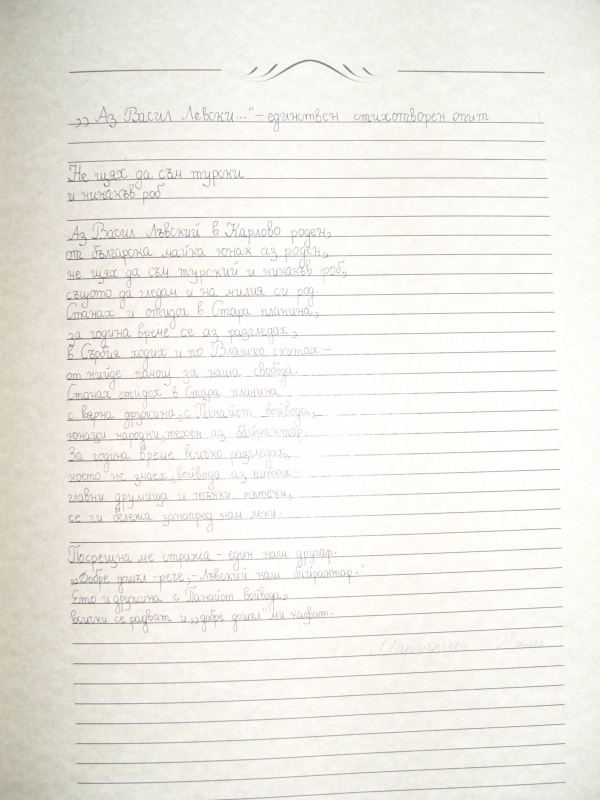 ,,Аз Васил Левски..."- единствен стихотворен опит
Не щях да съм турски
и никакъв роб
Аз Васил Лъвский в Карлово роден,
от българска майка юнак аз роден,
не щях да съм турский и никакъв роб,
същото да гледам и на милия си род.
Станах и отидох в Стара планина,
за година време се аз разгледах,
в Сърбия ходих и по Влашко скитах-
от нийде помощ за наша свобода.
Станах отидох в Стара планина
с вярна дружина, с Панайот войвода,
юнаци народни, техен аз байрактар.
За година време всичко разгледах,
което не знаех, войвода аз питах-
главни друмища и тънки пътеки,
се ги бележа занапред нам леки.
Посрещна ме стража - един наш другар.
,,Добре дошъл -рече,- Лъвский наш байрактар."
Ето и дружина с Панайот войвода,
всички се радват и ,,добре дошъл" ми казват.